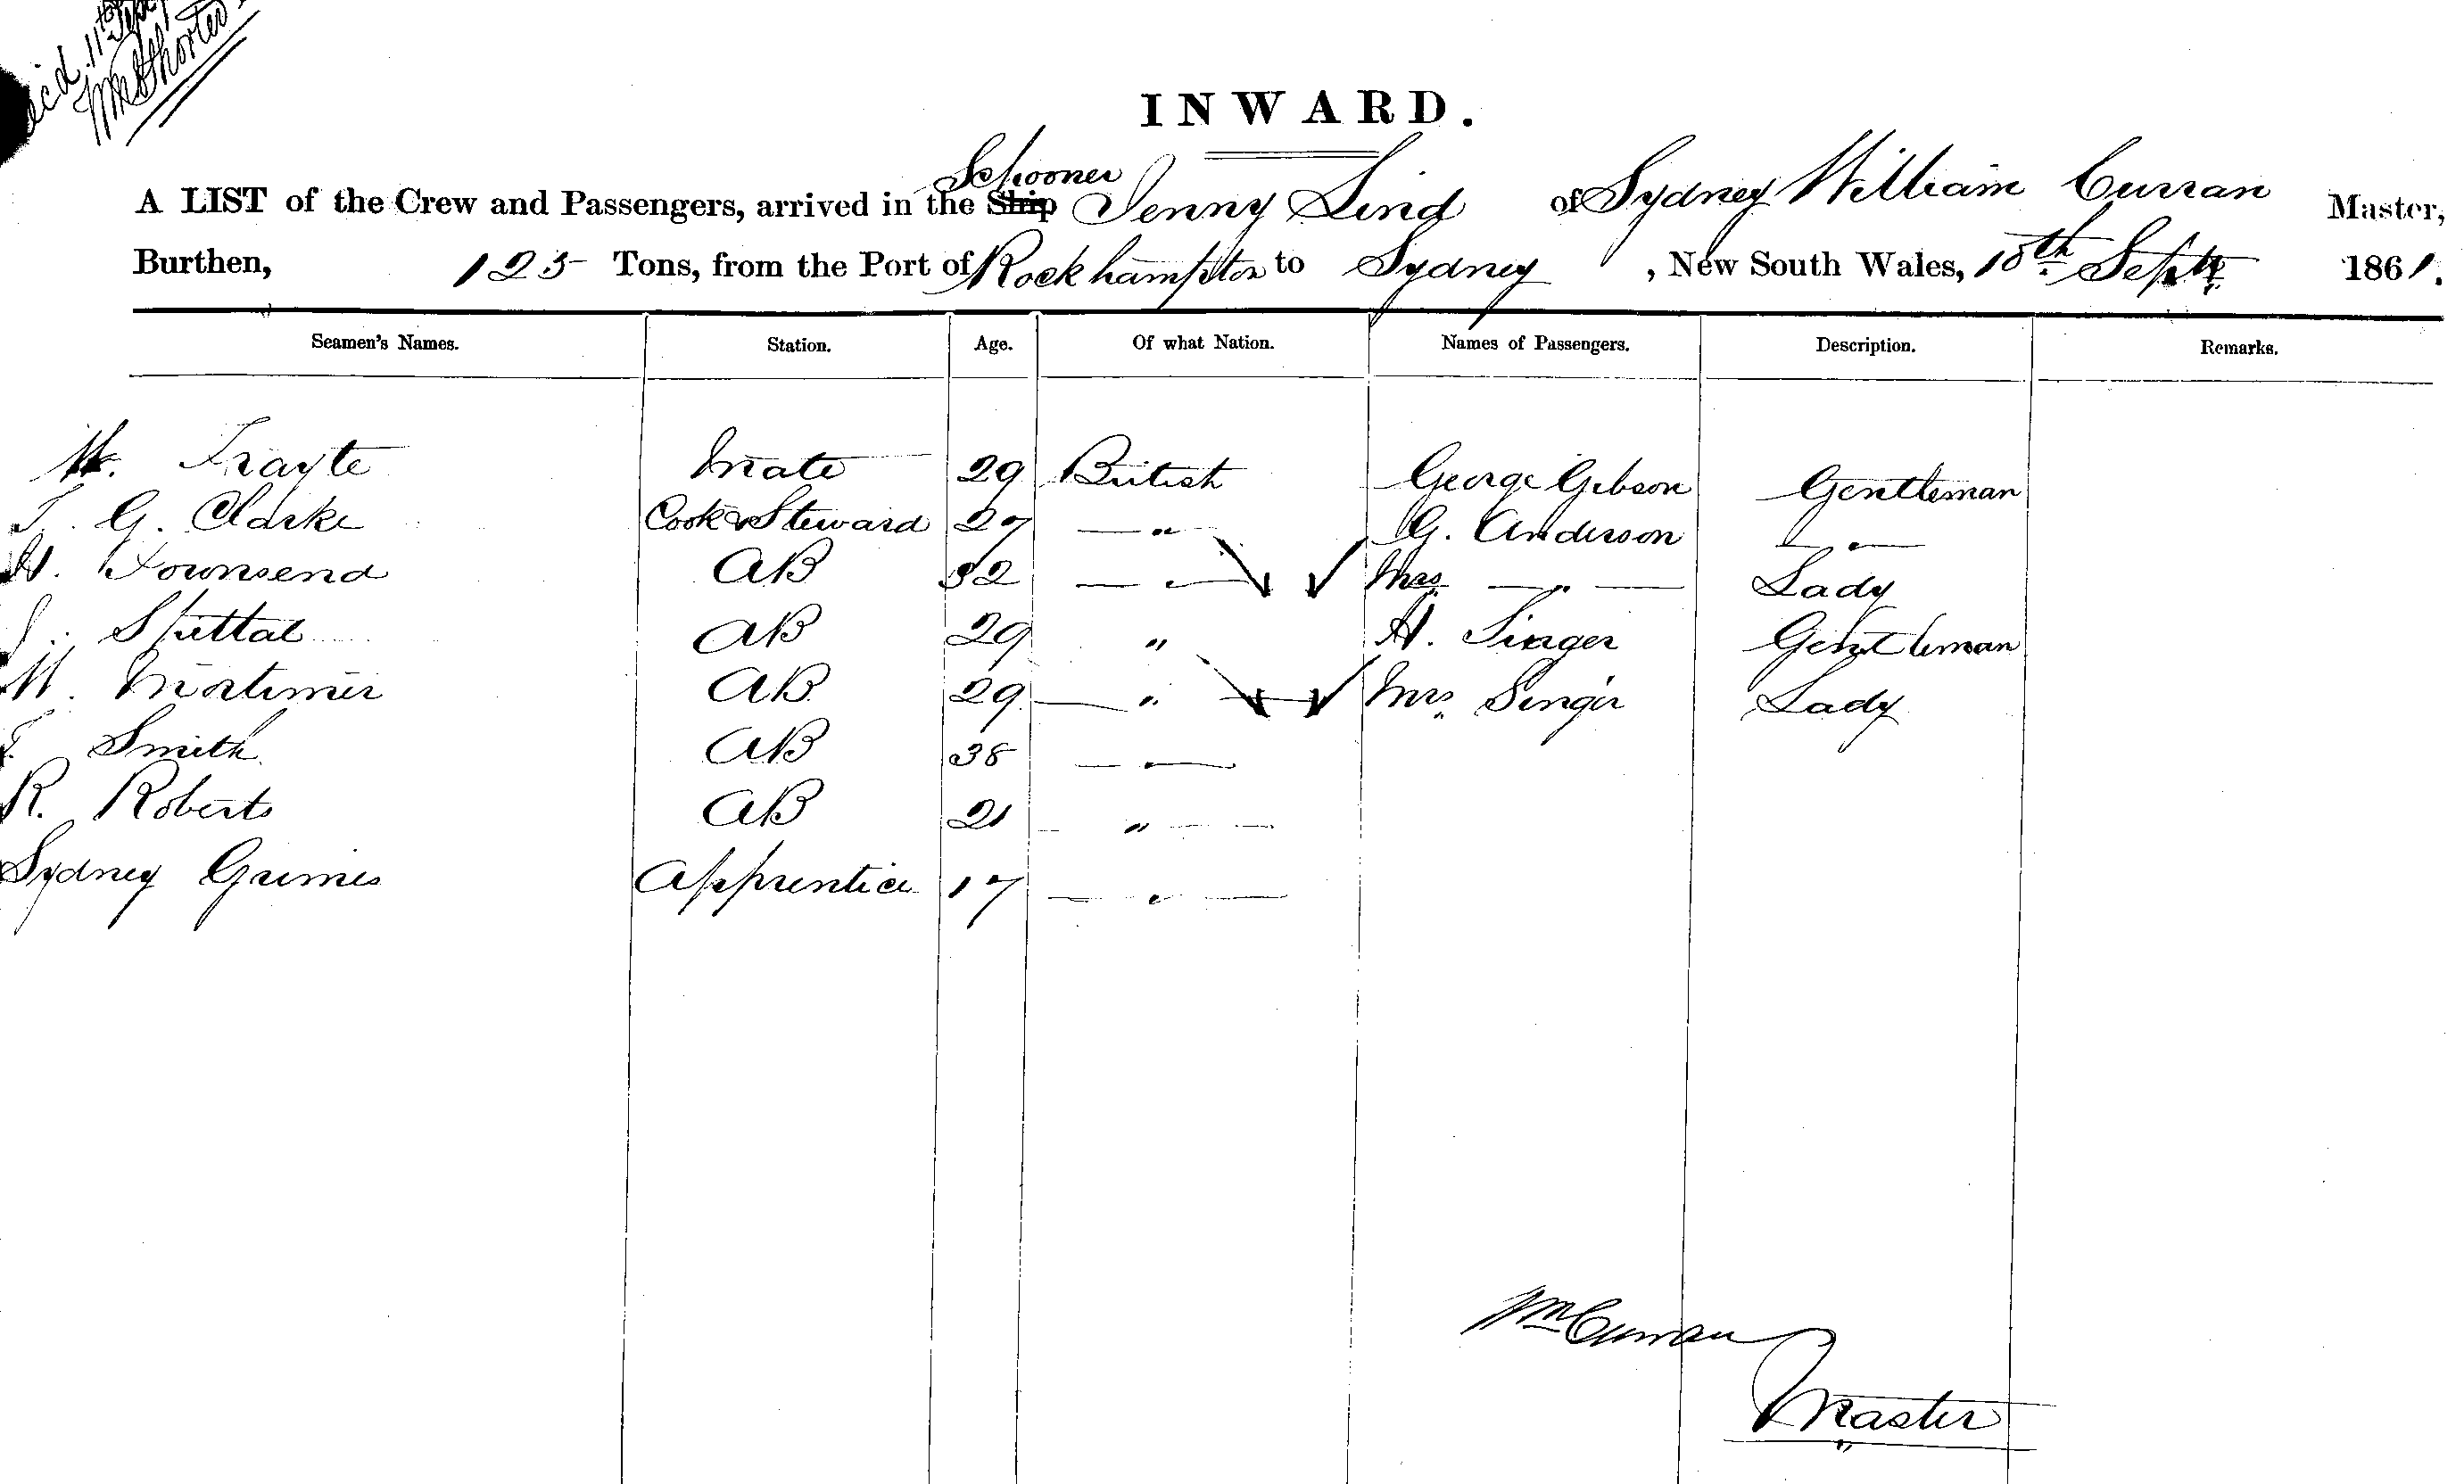 11th Sept
INWARD.
A LIST of the Crew and Passengers, arrived in the Ship Schooner Jenny Lind of Sydney William Curran Master,
Burthen, 123 Tons, from the Port of Rockhampton to Sydney, New South Wales, 10th Septr 1861.
Seamen's Names. Station. Age. Of what Nation. Names of Passengers. Description. Remarks.
Trayte Mate 29 British George Gibson Gentleman
T. G. Clarke Cook & Steward 27 " G. Anderson "
H. Townsend AB 32 " Mrs " Lady
J. Spittal AB 29 " H. Singer Gentleman
W. Mortimer AB 29 " Mrs Singer Lady
Smith AB 38 "
R. Roberts AB 21 "
Sydney Grimes Apprentice 17 "
Wm Curran
Master